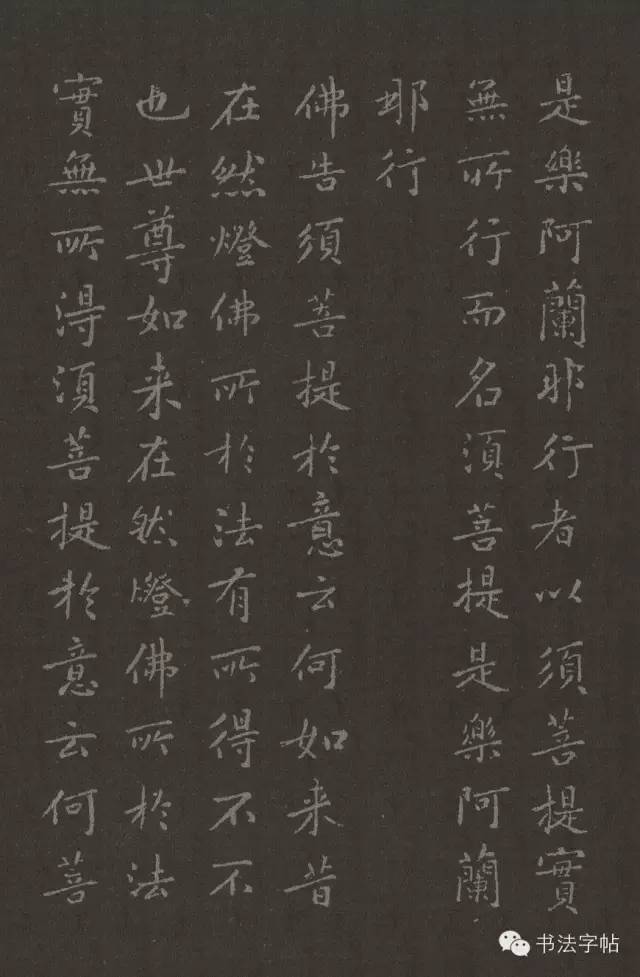 是樂阿蘭那行者以須菩提實
無所行而名須菩提是樂阿蘭
那行
佛告須菩提於意云何如来昔
在然燈佛所於法有所得不不
也世尊如来在然燈佛所於法
實無所得須菩提於意云何菩
书法字帖